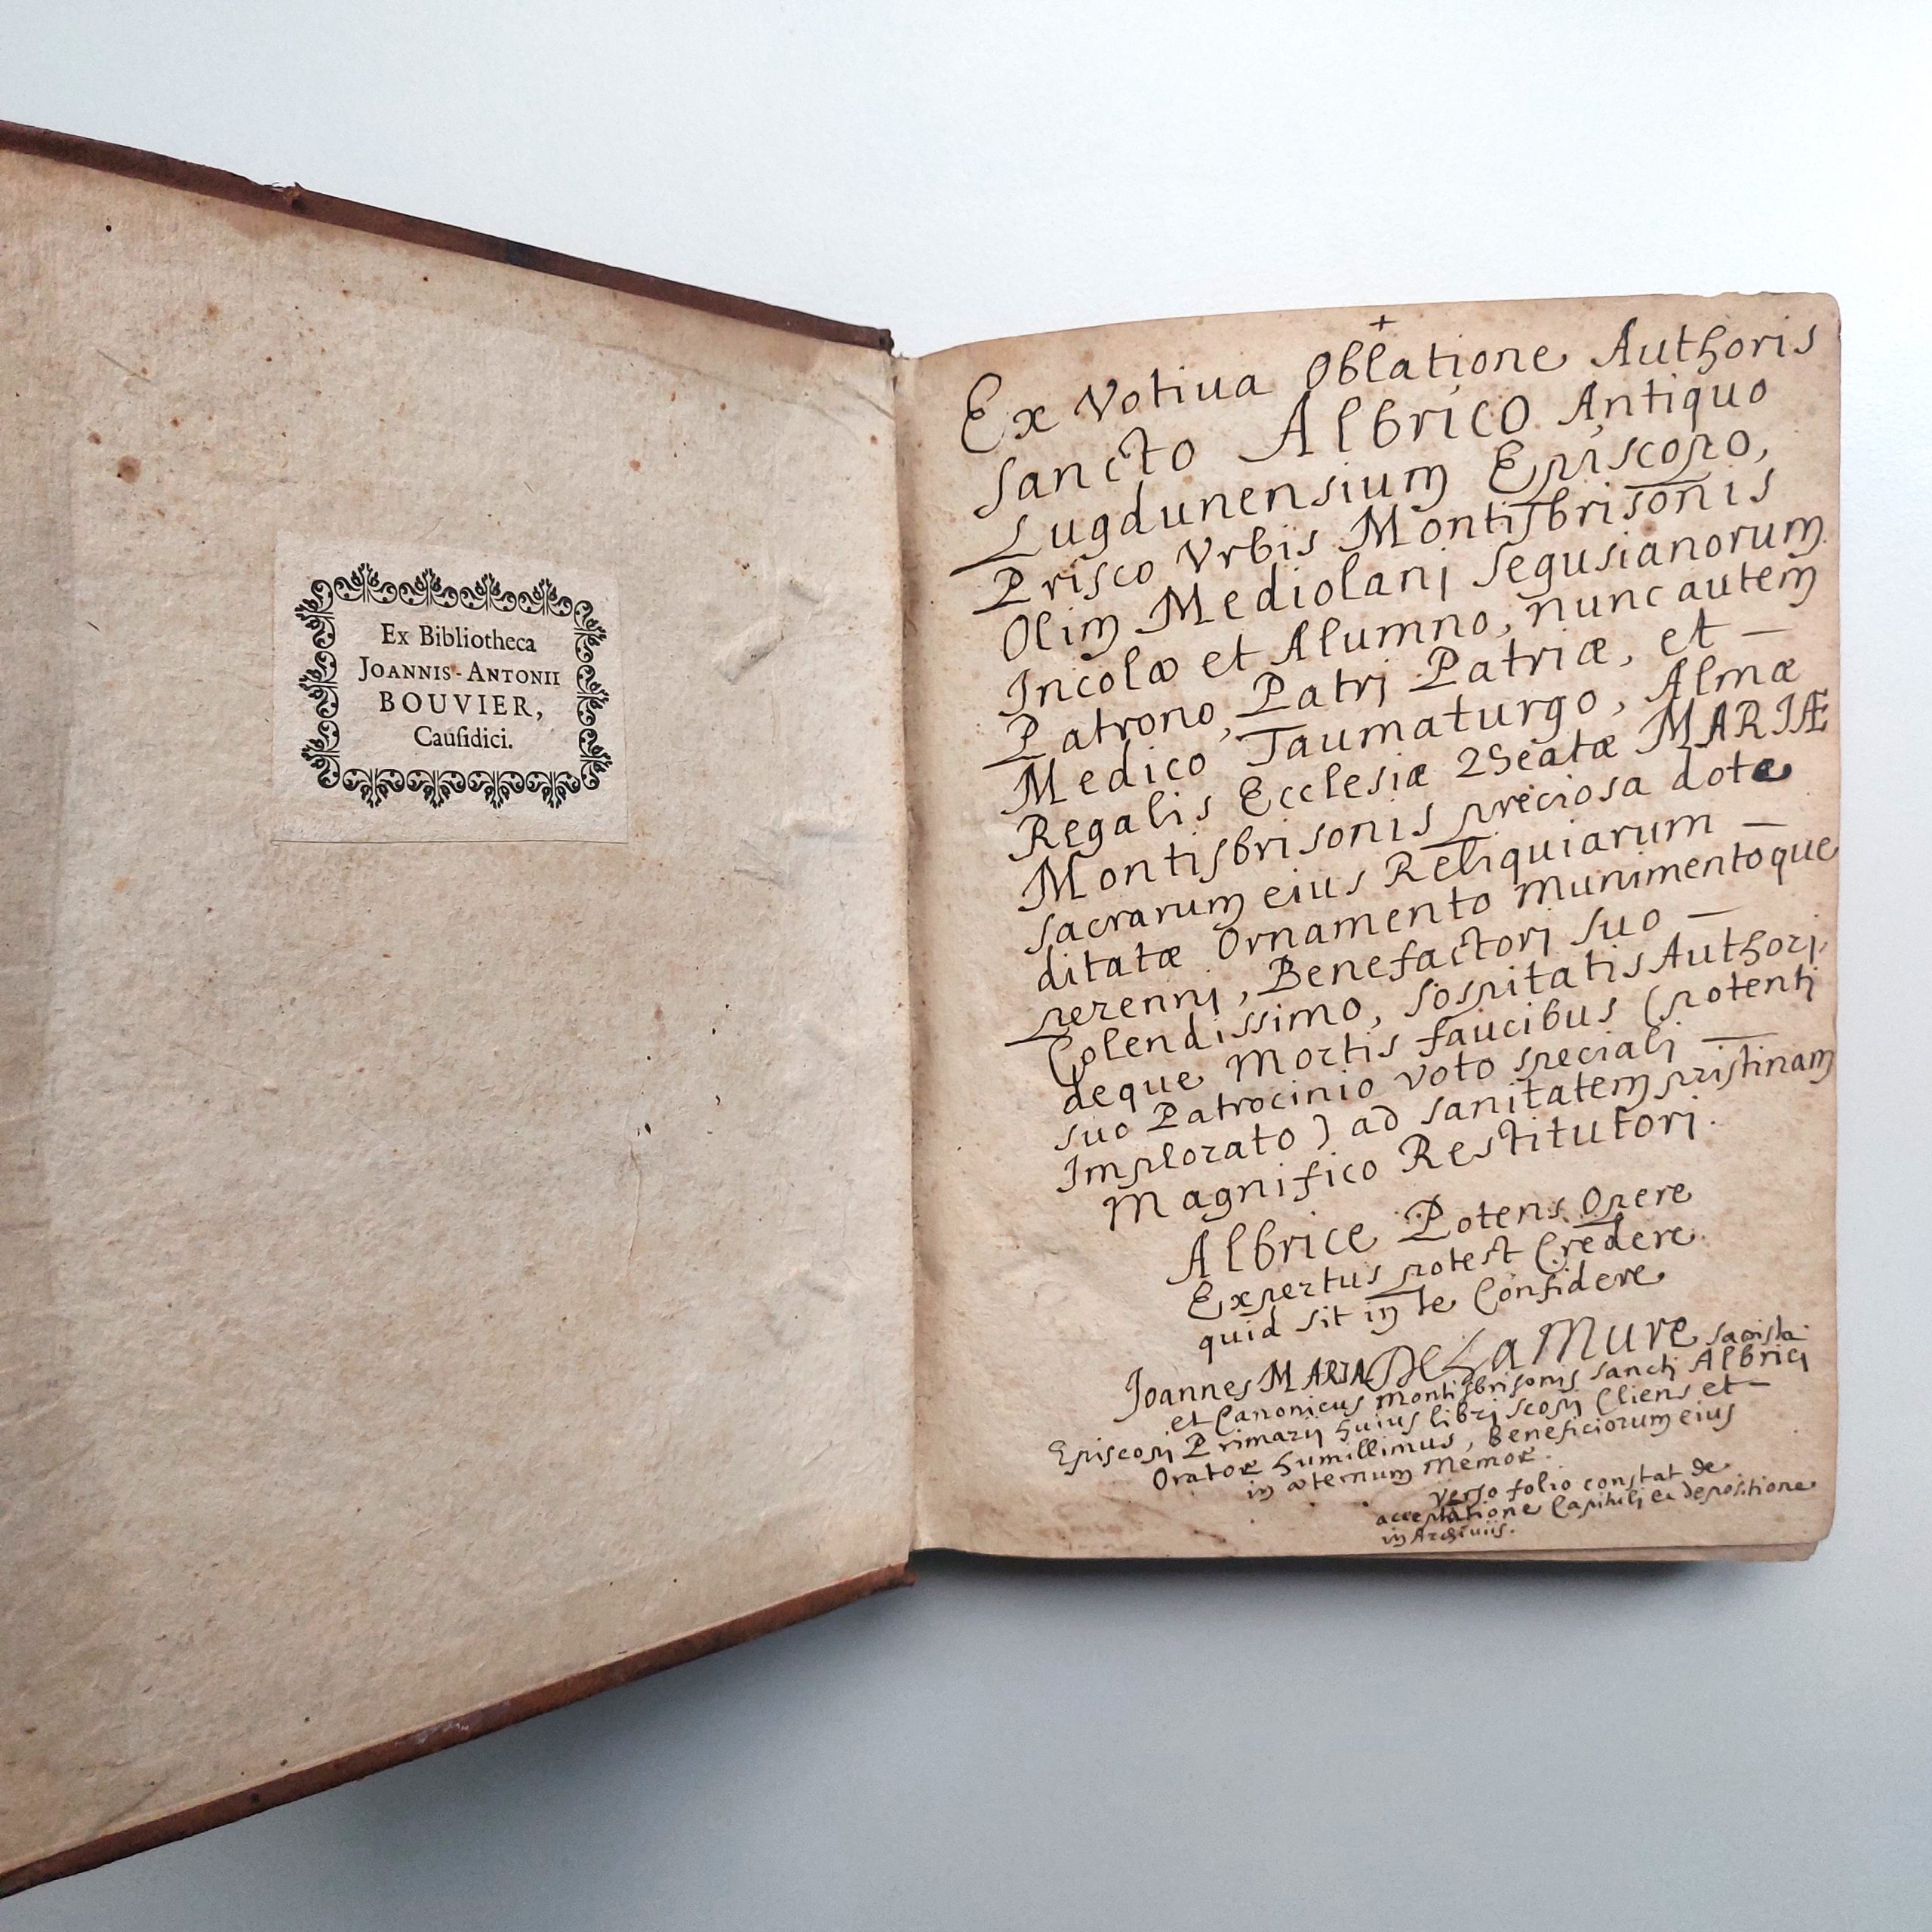 Ex Bibliotheca
JOANNIS-ANTONII
BOUVIER,
Cauſidici.
+
Ex Votiua Oblatione Authoris
Sancto Albrico Antiquo
Lugdunensium Episcopo,
Prisco Vrbis Montisbrisonis
Olim Mediolanj Segusianorum
Incolæ et Alumno, nunc autem
Patrono, Patrj Patriæ, et —
Medico Taumaturgo, Almæ
Regalis Ecclesiæ Beatæ MARIÆ
Montisbrisonis preciosa dote
Sacrarum eius Reliquiarum —
ditatæ Ornamento munimentoque
perennj, Benefactorj suo —
Colendissimo, Sospitatis Authorj,
deque Mortis faucibus (potentj
suo Patrocinio voto specialj —
Implorato) ad sanitatem pristinam
Magnifico Restitutorj.
Albrice Potens Opere
Expertus potest Credere
quid sit in te Confidere
Joannes MARIA De La Mure Sacrista
et Canonicus Montisbrisonis Sanctj Albricj
Episcopj Primarij huius librj scopj Cliens et —
Orator humillimus, beneficiorum eius
in æternum Memor.
verso folio constat de
acceptatione Capitulj et depositione
in Archiuiis.